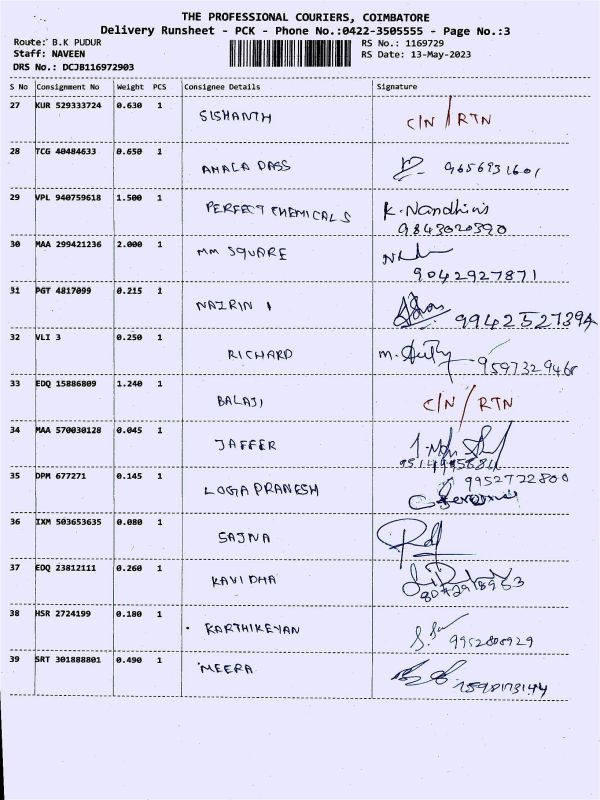 THE PROFESSIONAL COURIERS, COIMBATORE
Delivery Runsheet - PCK - Phone No.:0422-3505555 - Page No.:3
Route: B.K PUDUR
RS No.: 1169729
Staff: NAVEEN
RS Date: 13-May-2023
DRS No.: DCJB116972903
S No Consignment No Weight PCS Consignee Details Signature
27 KUR 529333724 0.630 1 SISHANTH C/N / RTN
28 TCG 40484633 0.650 1 AMALA DASS 9656931601
29 VPL 940759618 1.500 1 PERFECT CHEMICALS K. Nandhini
9843020390
30 MAA 299421236 2.000 1 MM SQUARE
9042927871
31 PGT 4817099 0.215 1 NAIRIN 9942527394
32 VLI 3 0.250 1 RICHARD
33 EDQ 15886809 1.240 1 BALAJI C/N / RTN
34 MAA 570030128 0.045 1 JAFFER
35 DPM 677271 0.145 1 LOGA PRANESH 9952722800
36 IXM 503653635 0.080 1 SAJNA
37 EDQ 23812111 0.260 1 KAVIDHA
38 HSR 2724199 0.180 1 KARTHIKEYAN
39 SRT 301888801 0.490 1 MEERA